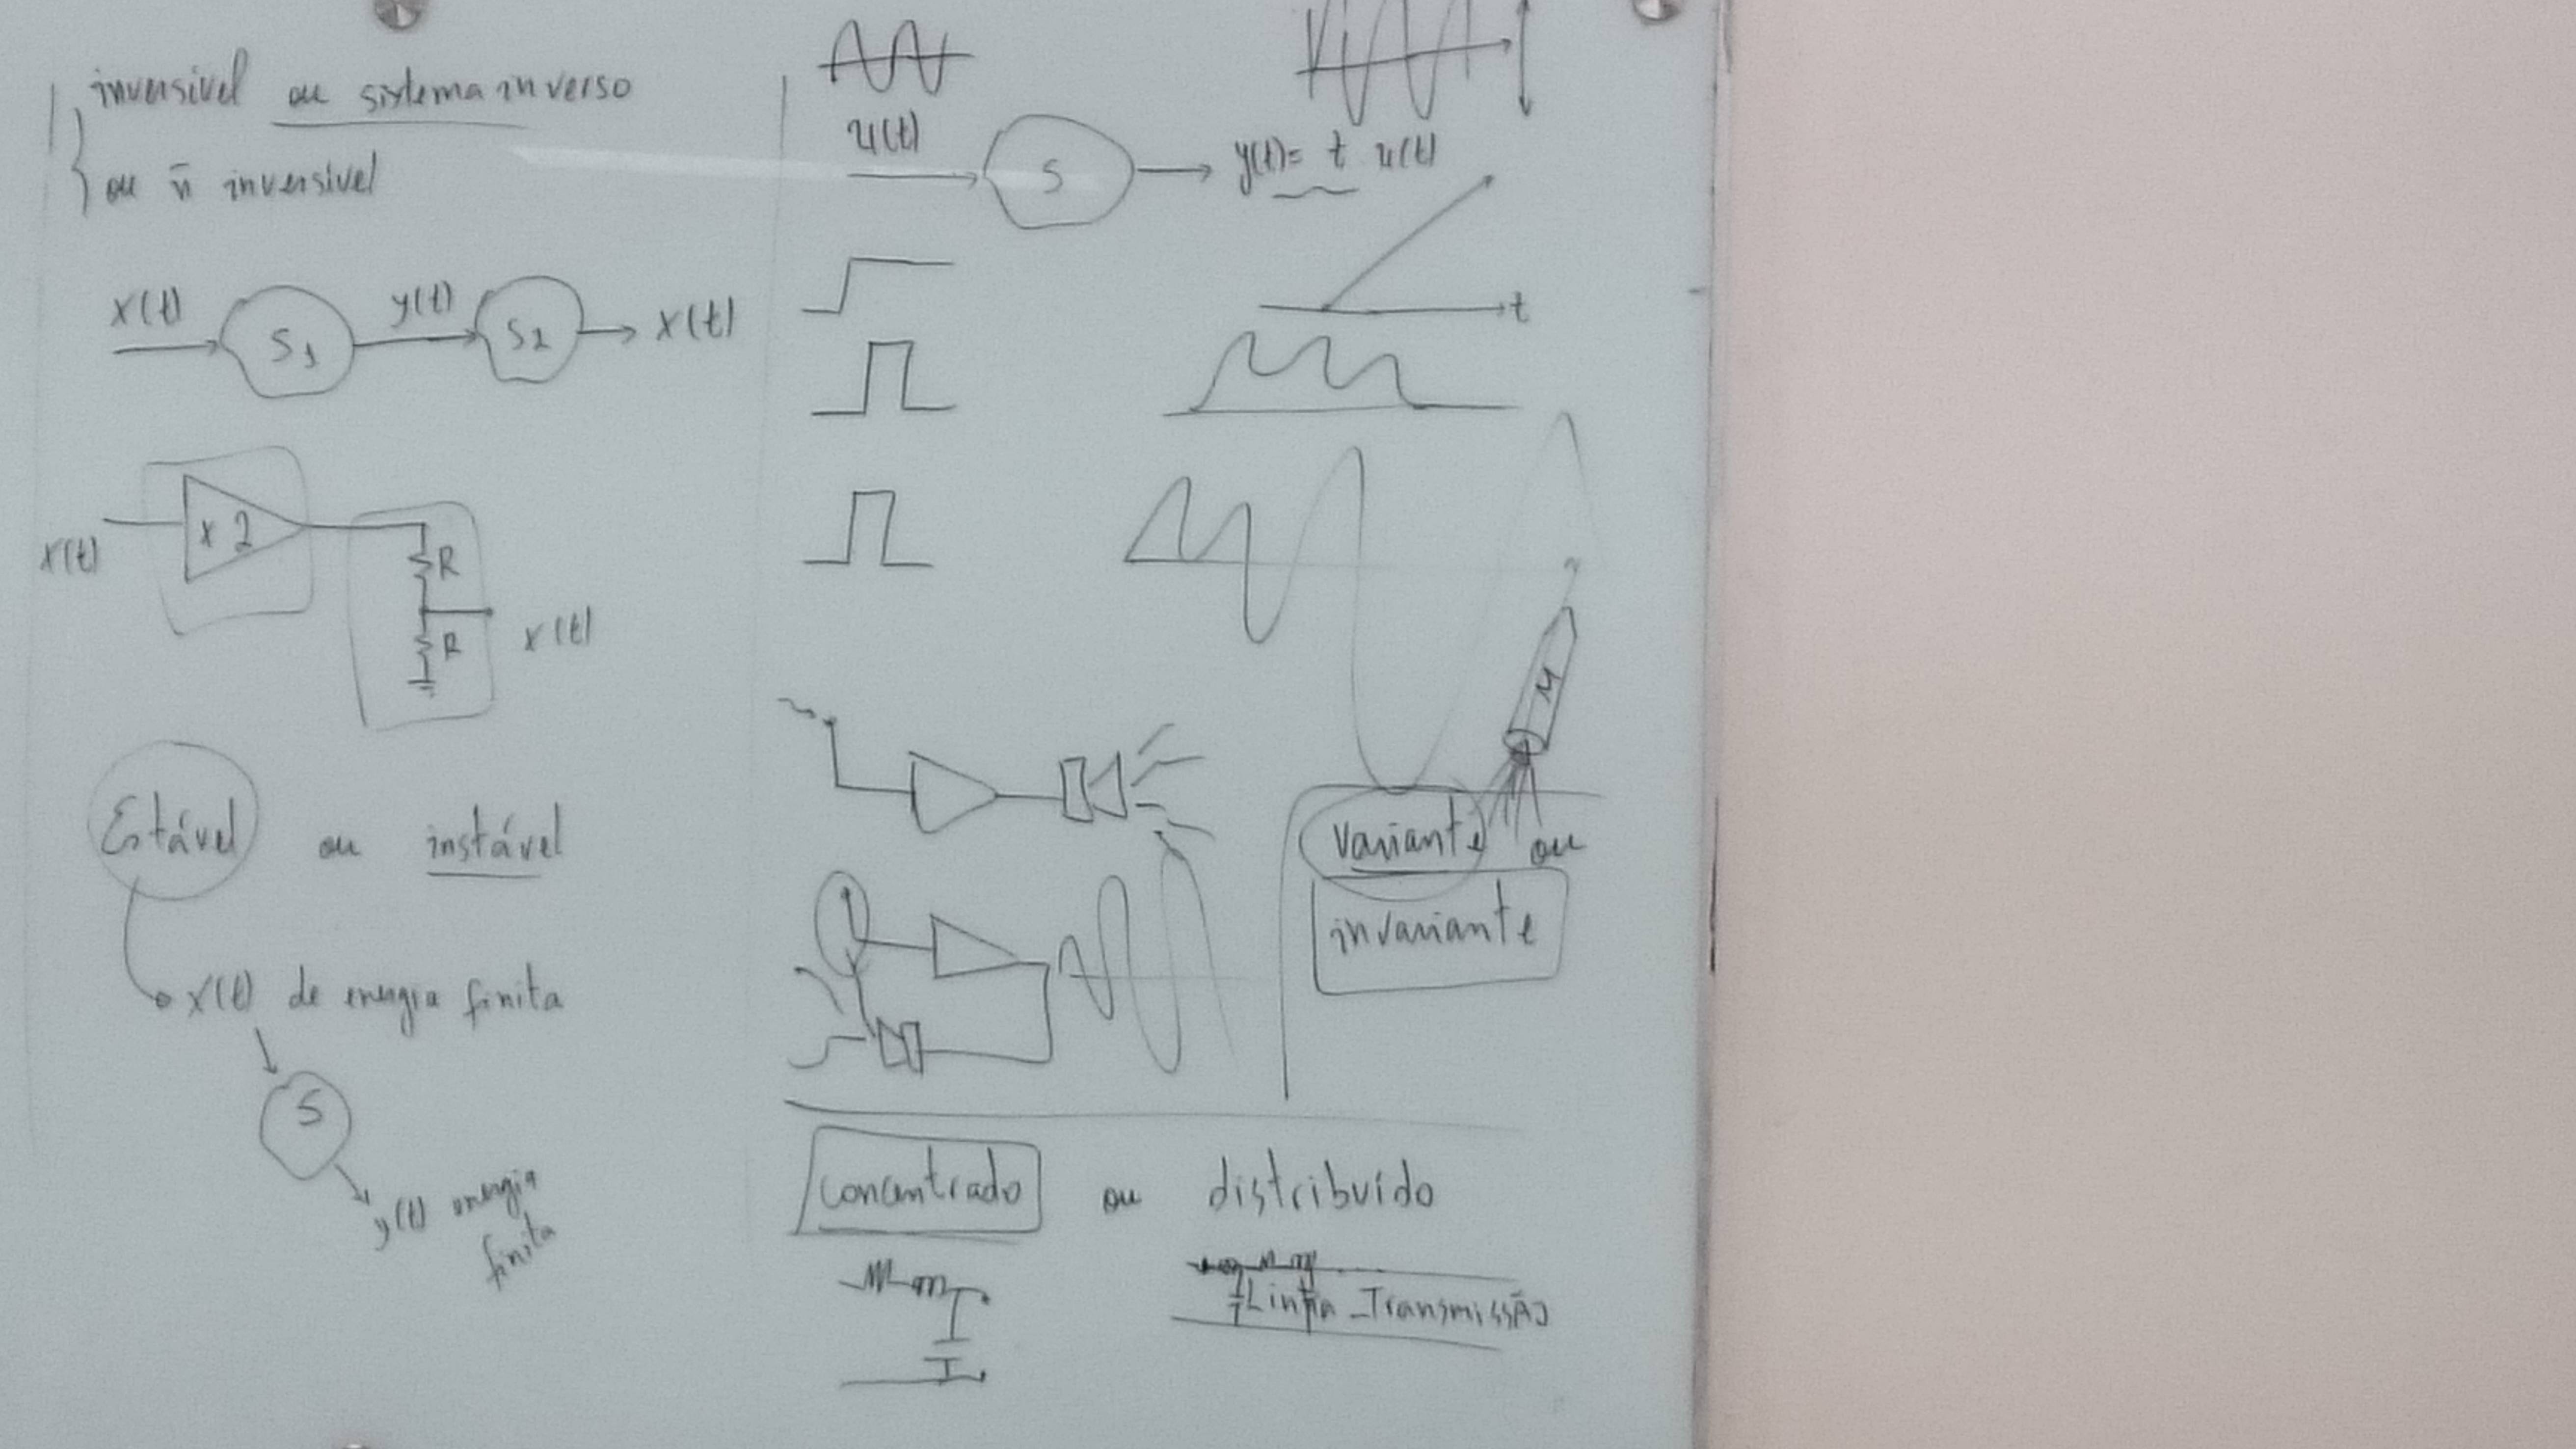 inversível ou sistema inverso
ou ñ inversível
x(t) S1 y(t) S2 x(t)
x(t) x 2
R
R
x(t)
Estável ou instável
x(t) de energia finita
S
y(t) energia
finita
u(t)
S
y(t)= t u(t)
t
M
variante ou
invariante
concentrado ou distribuído
Linha Transmissão